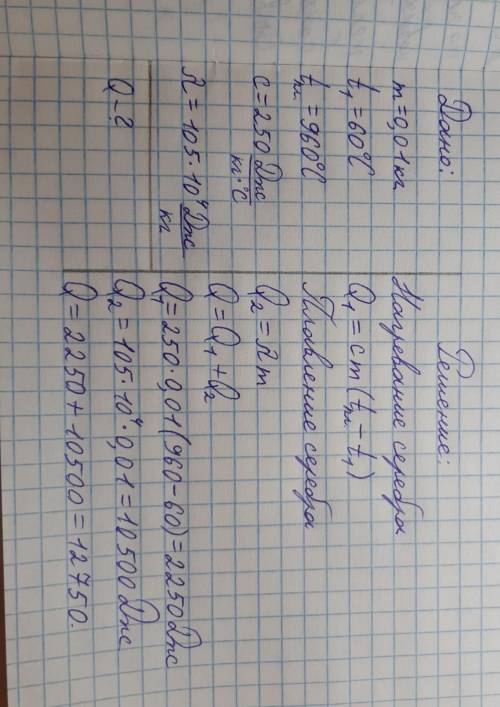 Дано:
m = 0,01 кг
t₁ = 60°C
tпл = 960°C
c = 250 Дж/кг·°C
λ = 105·10⁴ Дж/кг
Q - ?
Решение:
Нагревание серебра
Q₁ = cm(tпл - t₁)
Плавление серебра
Q₂ = λm
Q = Q₁ + Q₂
Q₁ = 250·0,01(960-60) = 2250 Дж
Q₂ = 105·10⁴·0,01 = 10500 Дж
Q = 2250 + 10500 = 12750.